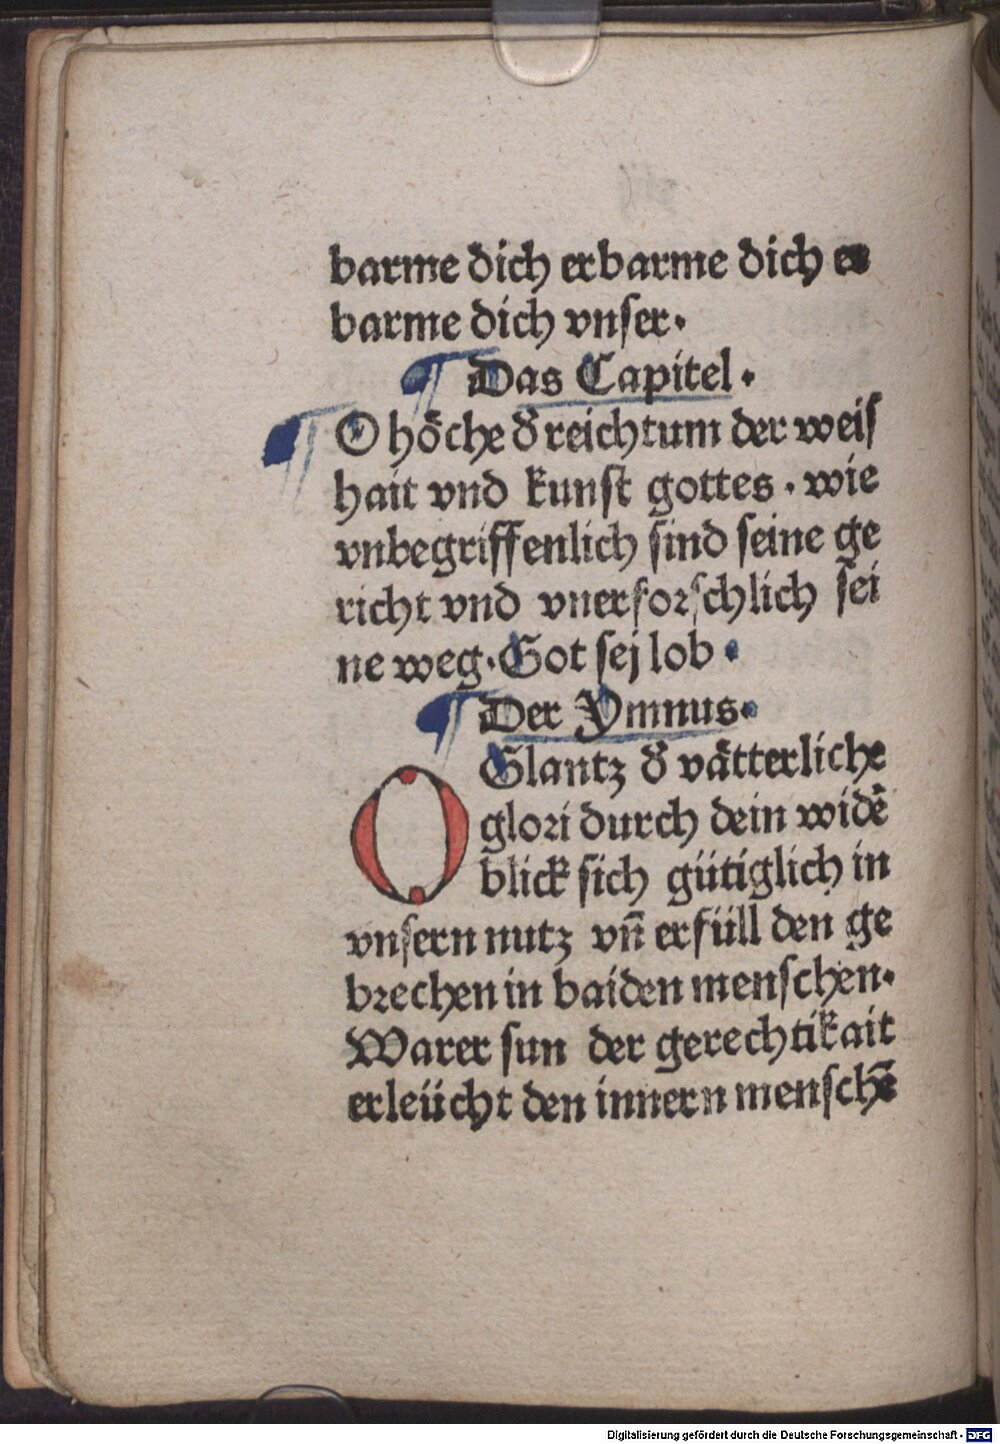 barme dich erbarme dich er
barme dich vnſer.
¶ Das Capitel.
¶ O hoͤche d̕ reichtum der weiſ
hait vnd kunſt gottes. wie
vnbegriffenlich ſind ſeine ge
richt vnd vnerforſchlich ſei
ne weg. Got ſej lob.
¶ Der Ymnus.
O Glantz d̕ vaͤtterliche
glori durch dein widē
blick ſich gütiglich in
vnſern nutz vn̄ erfüll den ge
brechen in baiden menſchen.
Warer ſun der gerechtikait
erleücht den innern menſchē
Digitalisierung gefördert durch die Deutsche Forschungsgemeinschaft - DFG